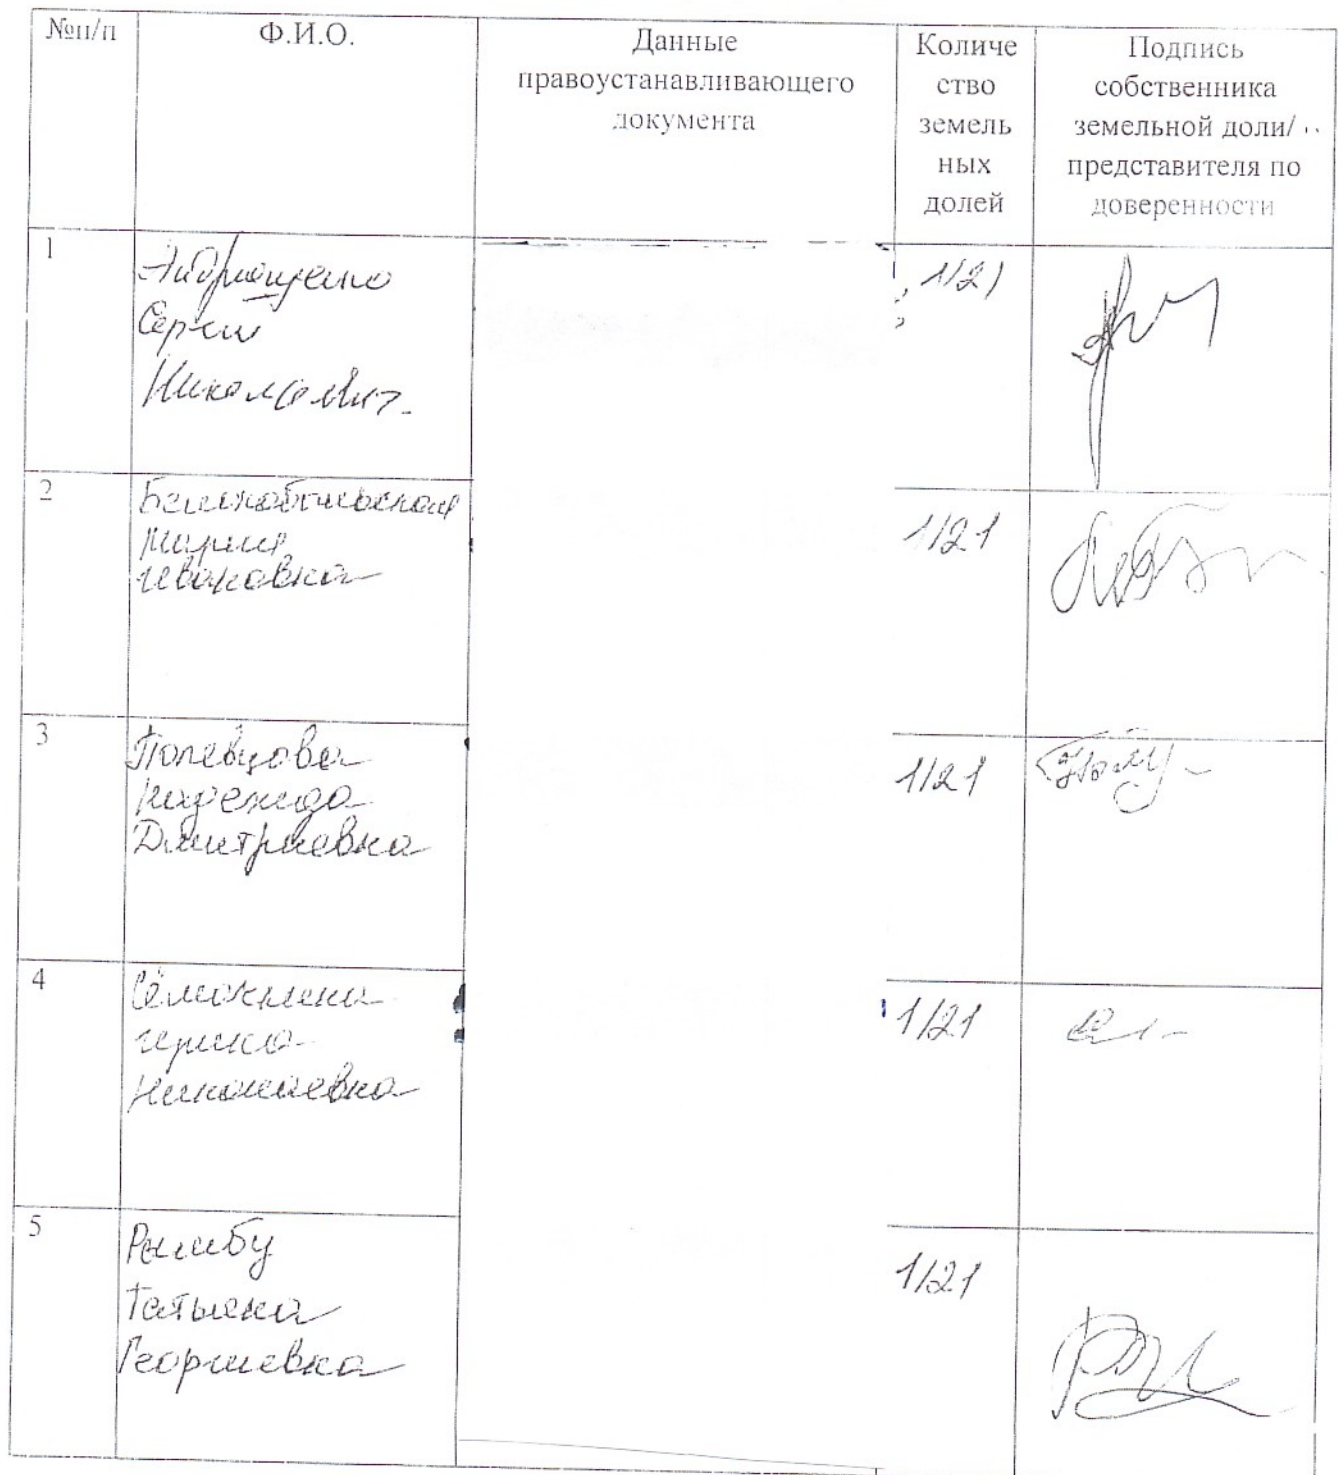 №п/п
Ф.И.О.
Данные
правоустанавливающего
документа
Количе
ство
земель
ных
долей
Подпись
собственника
земельной доли/
представителя по
доверенности
1
Андрющенко
Сергей
Николаевич
1/21
2
Мария
Ивановна
1/21
3
Полевцова
Надежда
Дмитриевна
1/21
4
Семохина
Ирина
Николаевна
1/21
5
Татьяна
Георгиевна
1/21